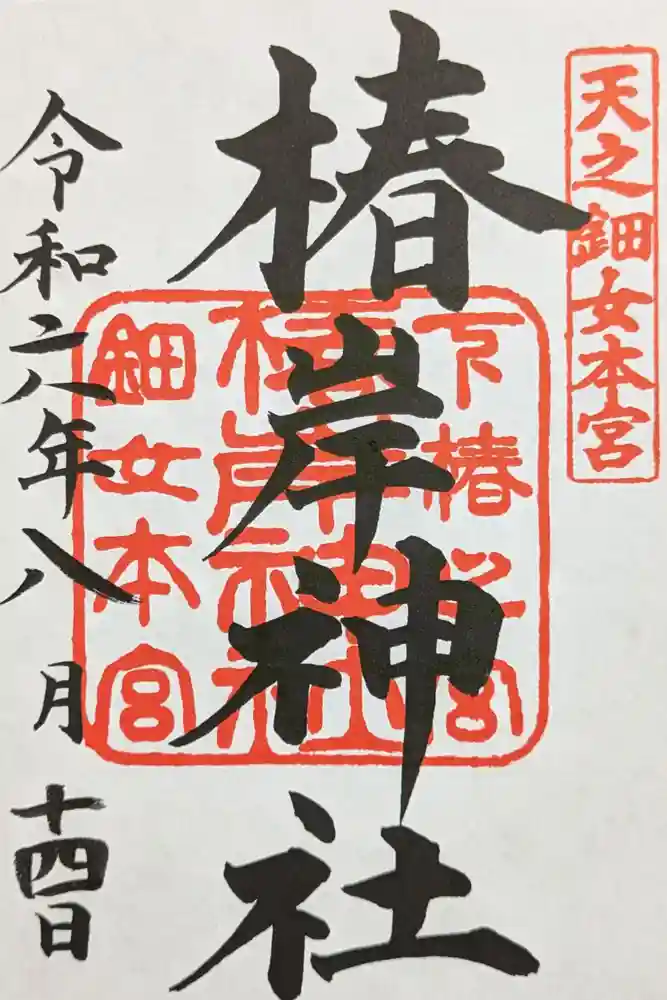 天之鈿女本宮
椿岸神社
下椿之宮
椿岸神社
鈿女本宮
令和六年八月十四日